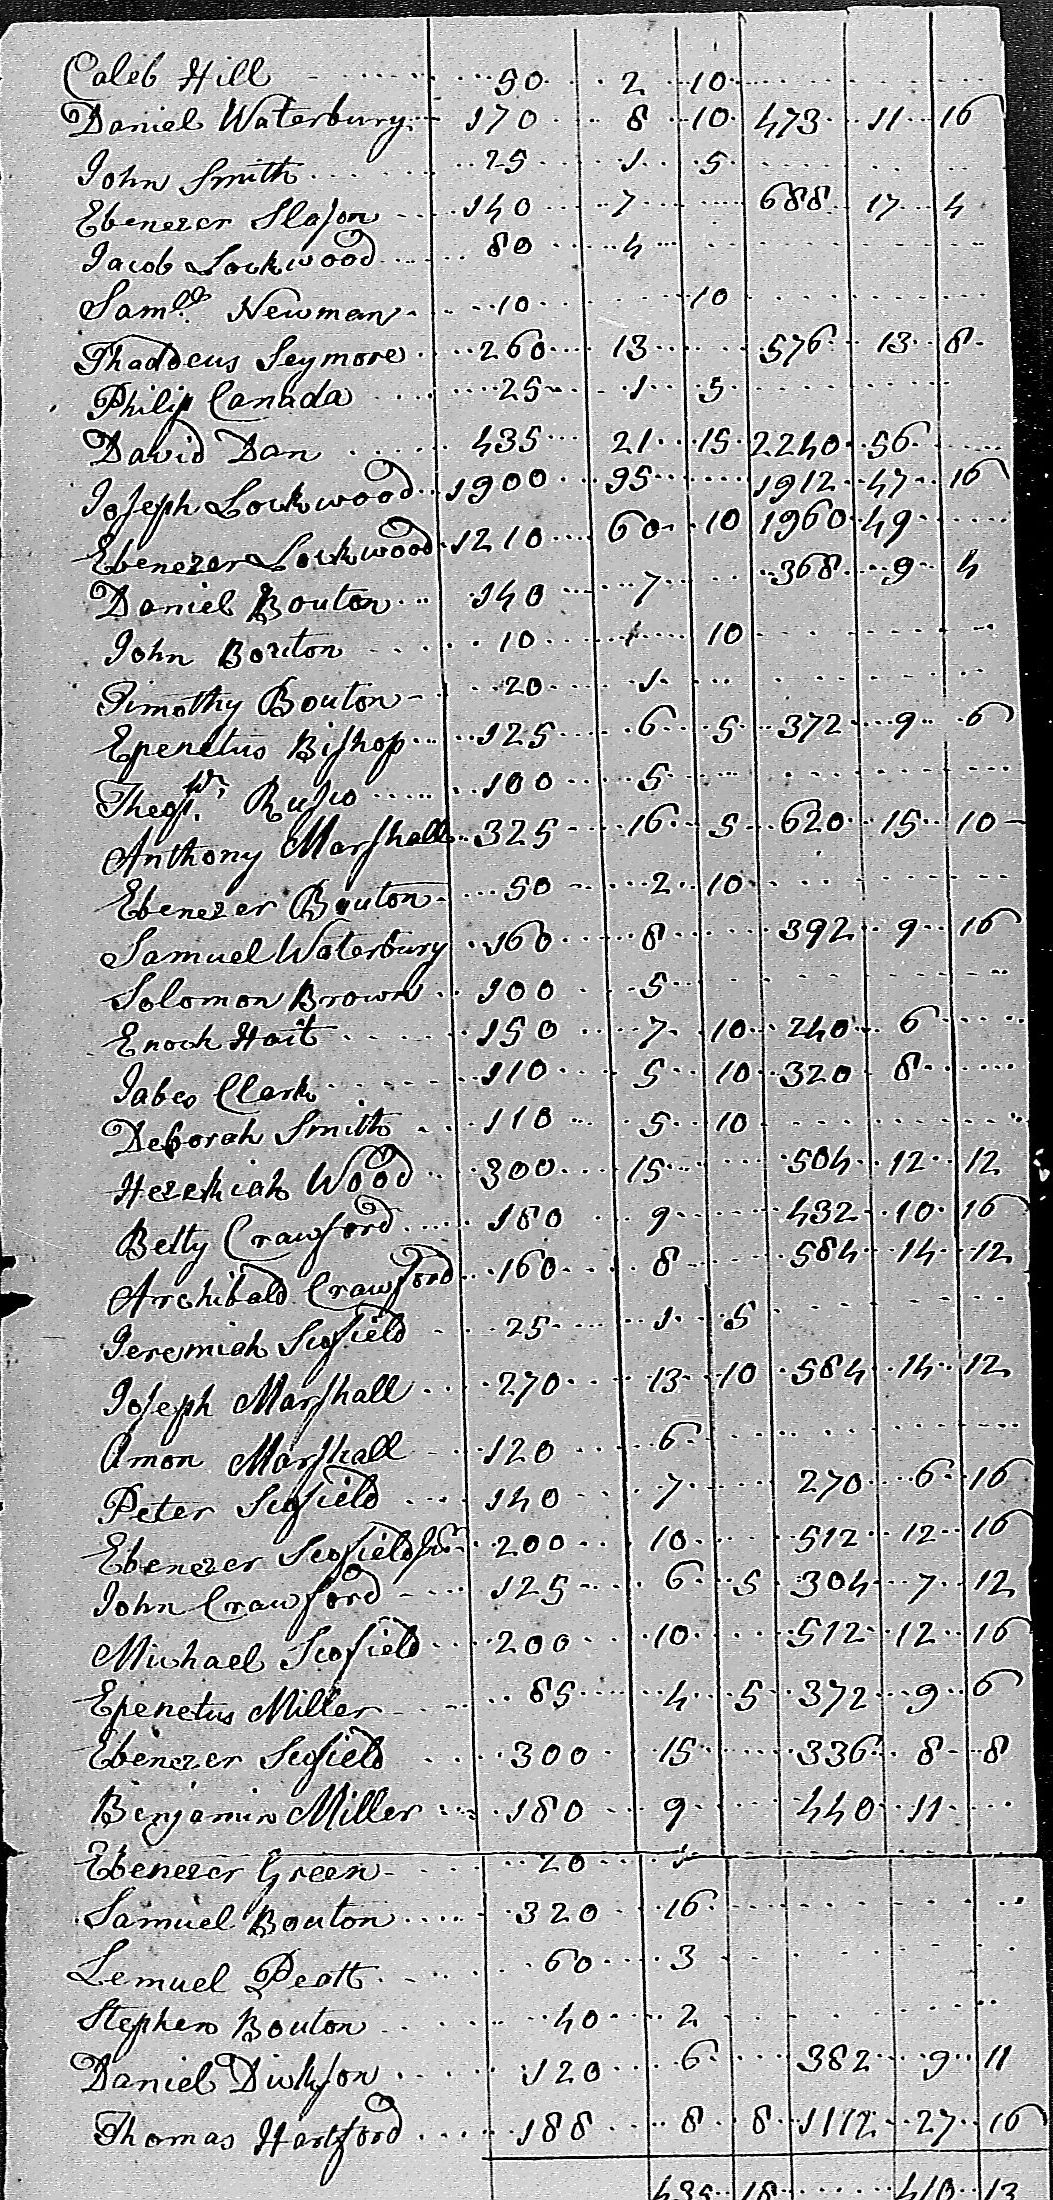 Caleb Hill 50 2 10
Daniel Waterbury 170 8 10 473 11 16
John Smith 25 1 5
Ebenezer Slaſon 140 7 688 17 4
Jacob Lockwood 80 4
Samll. Newman 10 10
Thaddeus Seymore 260 13 576 13 8
Philip Canada 25 1 5
David Dan 435 21 15 2240 56
Joſeph Lockwood 1900 95 1912 47 16
Ebenezer Lockwood 1210 60 10 1960 49
Daniel Bouton 140 7 368 9 4
John Bouton 10 10
Timothy Bouton 20 1
Epenetus Biſhop 125 6 5 372 9 6
Rusco 100 5
Anthony Marſhall 325 16 5 620 15 10
Ebenezer Bouton 50 2 10
Samuel Waterbury 160 8 392 9 16
Solomon Brown 100 5
Enoch Hait 150 7 10 240 6
Jabes Clark 110 5 10 320 8
Deborah Smith 110 5 10
Hezekiah Wood 300 15 504 12 12
Betty Crawford 180 9 432 10 16
Archibald Crawford 160 8 584 14 12
Jeremiah Scofield 25 1 5
Joſeph Marſhall 270 13 10 584 14 12
Amon Marſhall 120 6
Peter Scofield 140 7 270 6 16
Ebenezer Scofield Jur 200 10 512 12 16
John Crawford 125 6 5 304 7 12
Michael Scofield 200 10 512 12 16
Epenetus Miller 85 4 5 372 9 6
Ebenezer Scofield 300 15 336 8 8
Benjamin Miller 180 9 440 11
Ebenezer Green 20 1
Samuel Bouton 320 16
Lemuel Peatt 60 3
Stephen Bouton 40 2
Daniel Dickſon 120 6 382 9 11
Thomas Hartford 188 8 8 1112 27 16
435 18 410 13